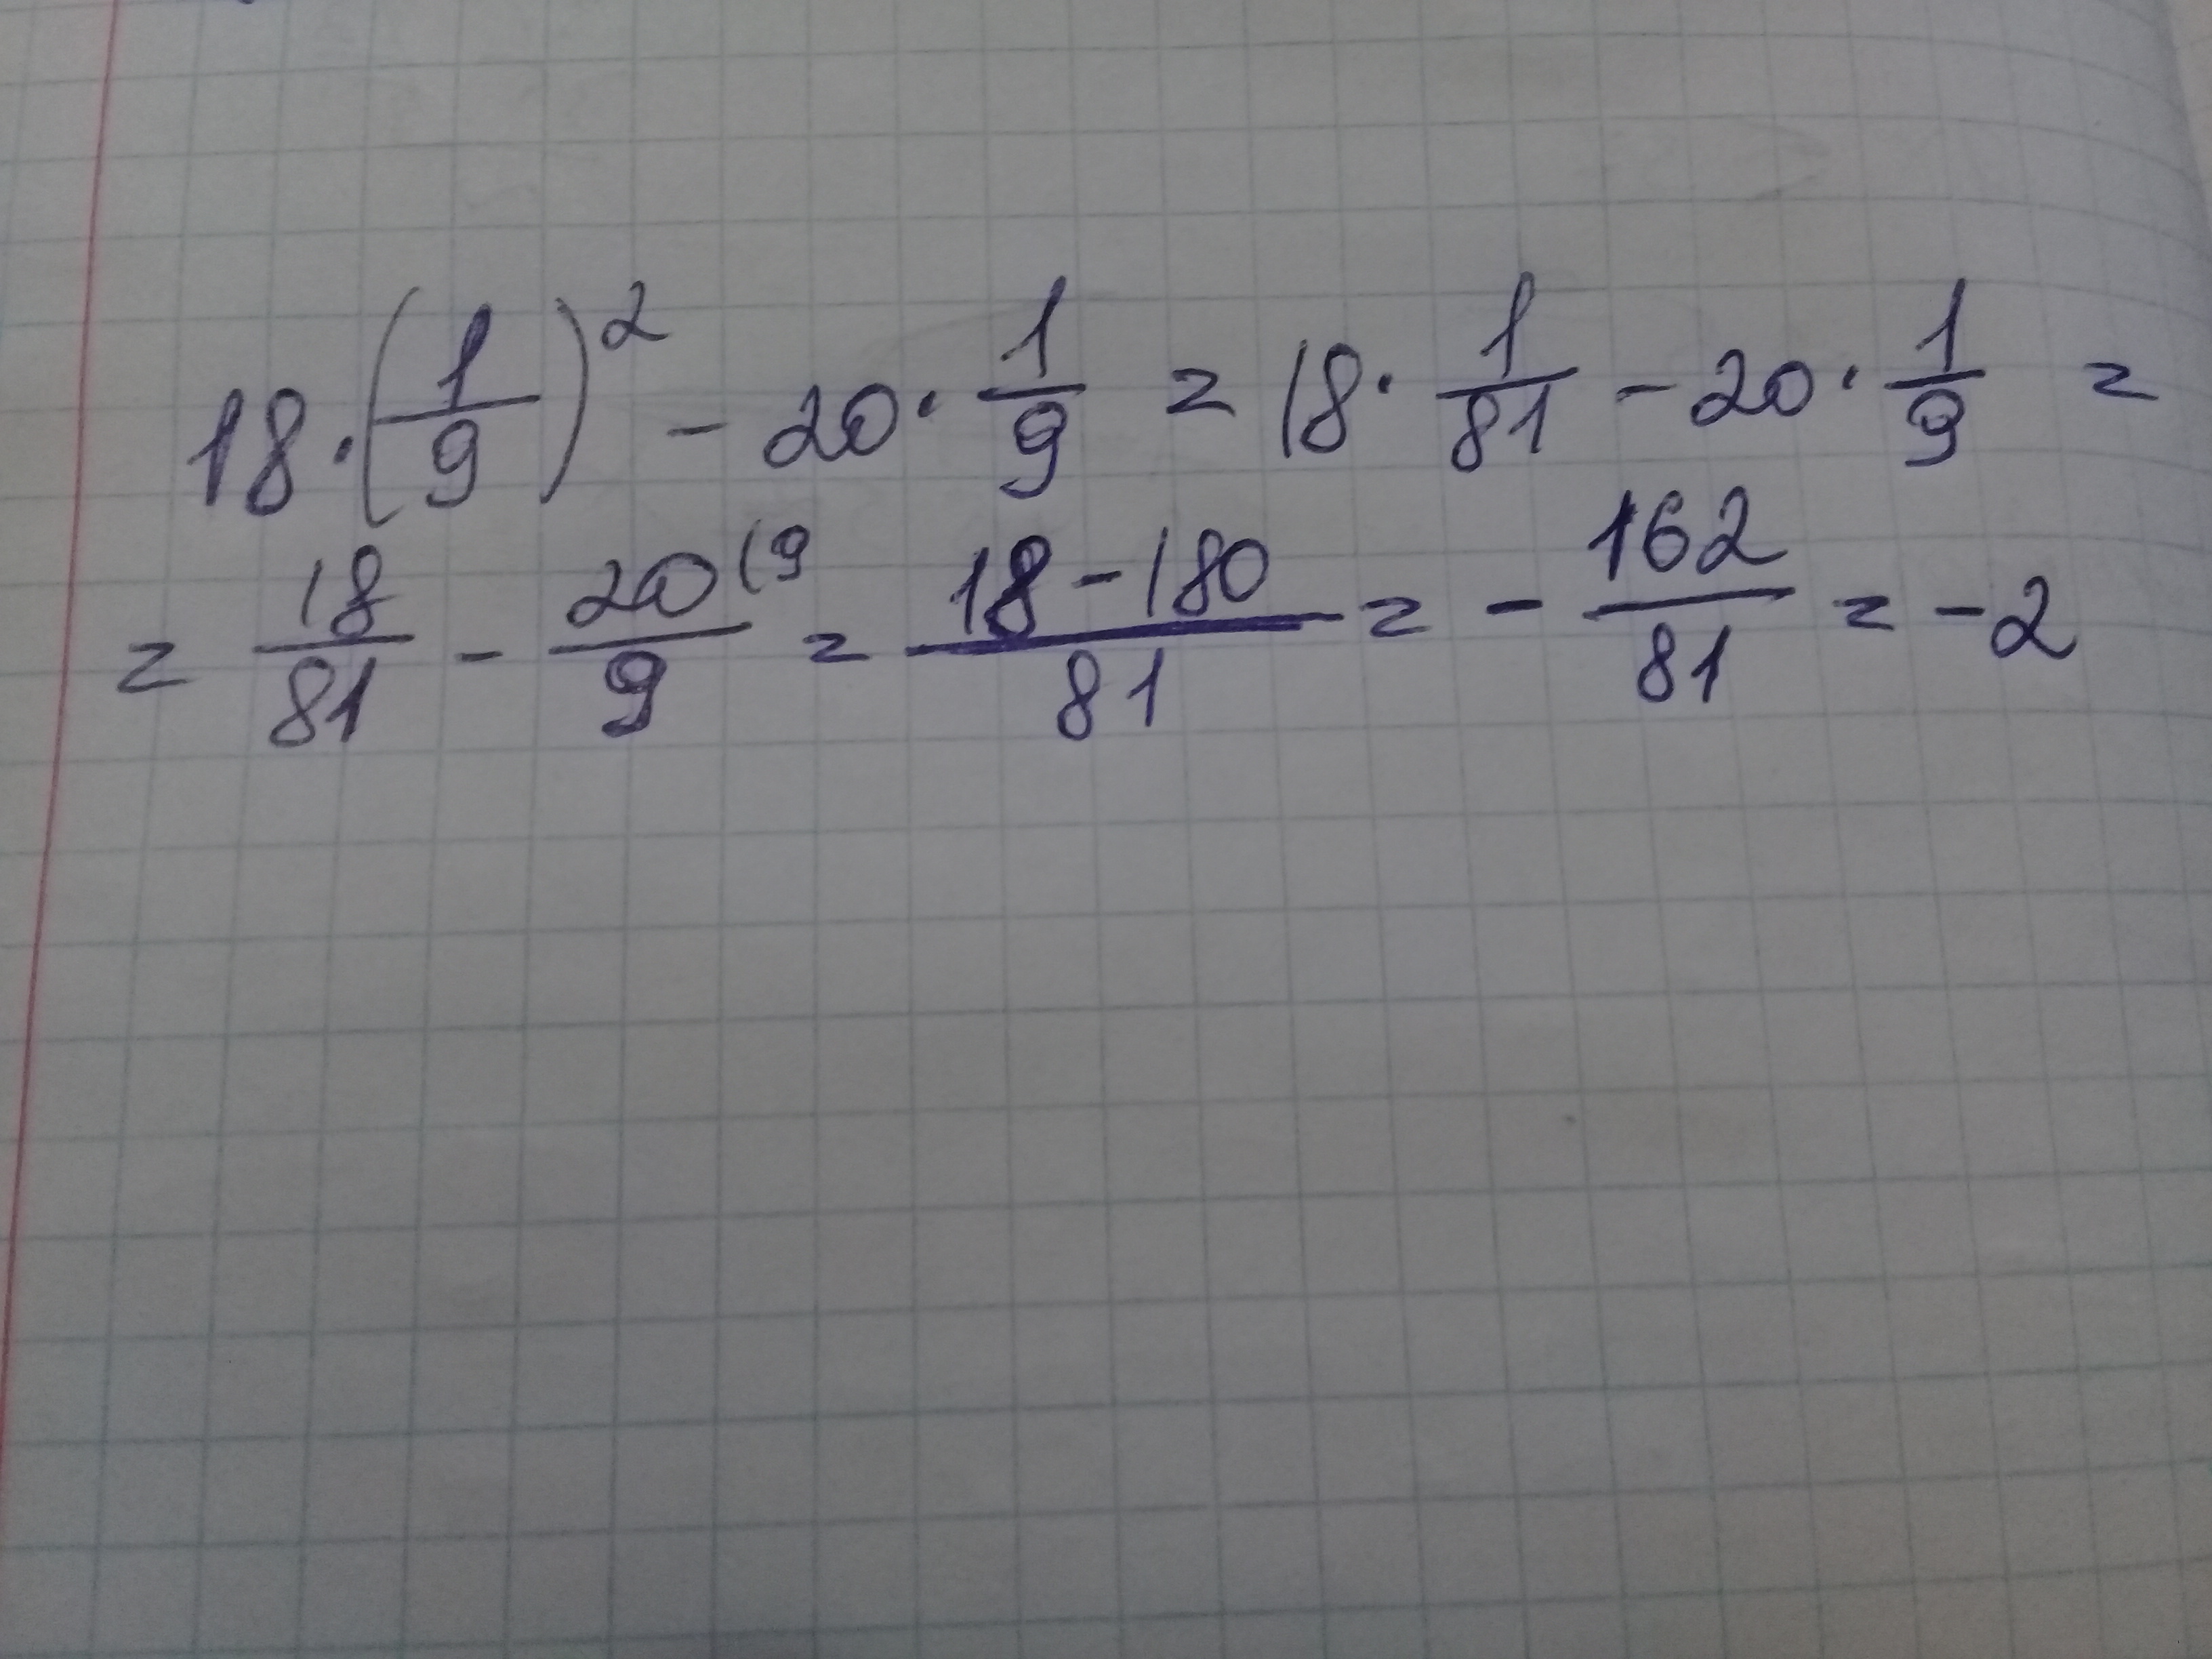 18·(1/9)² - 20·1/9 = 18·1/81 - 20·1/9 =
= 18/81 - 20(9/9 = 18-180/81 = -162/81 = -2